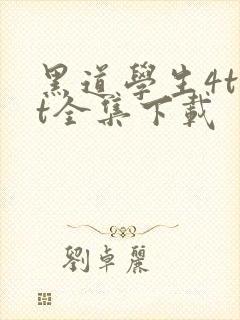 黑道學生4t
t全集下載
劉卓麗